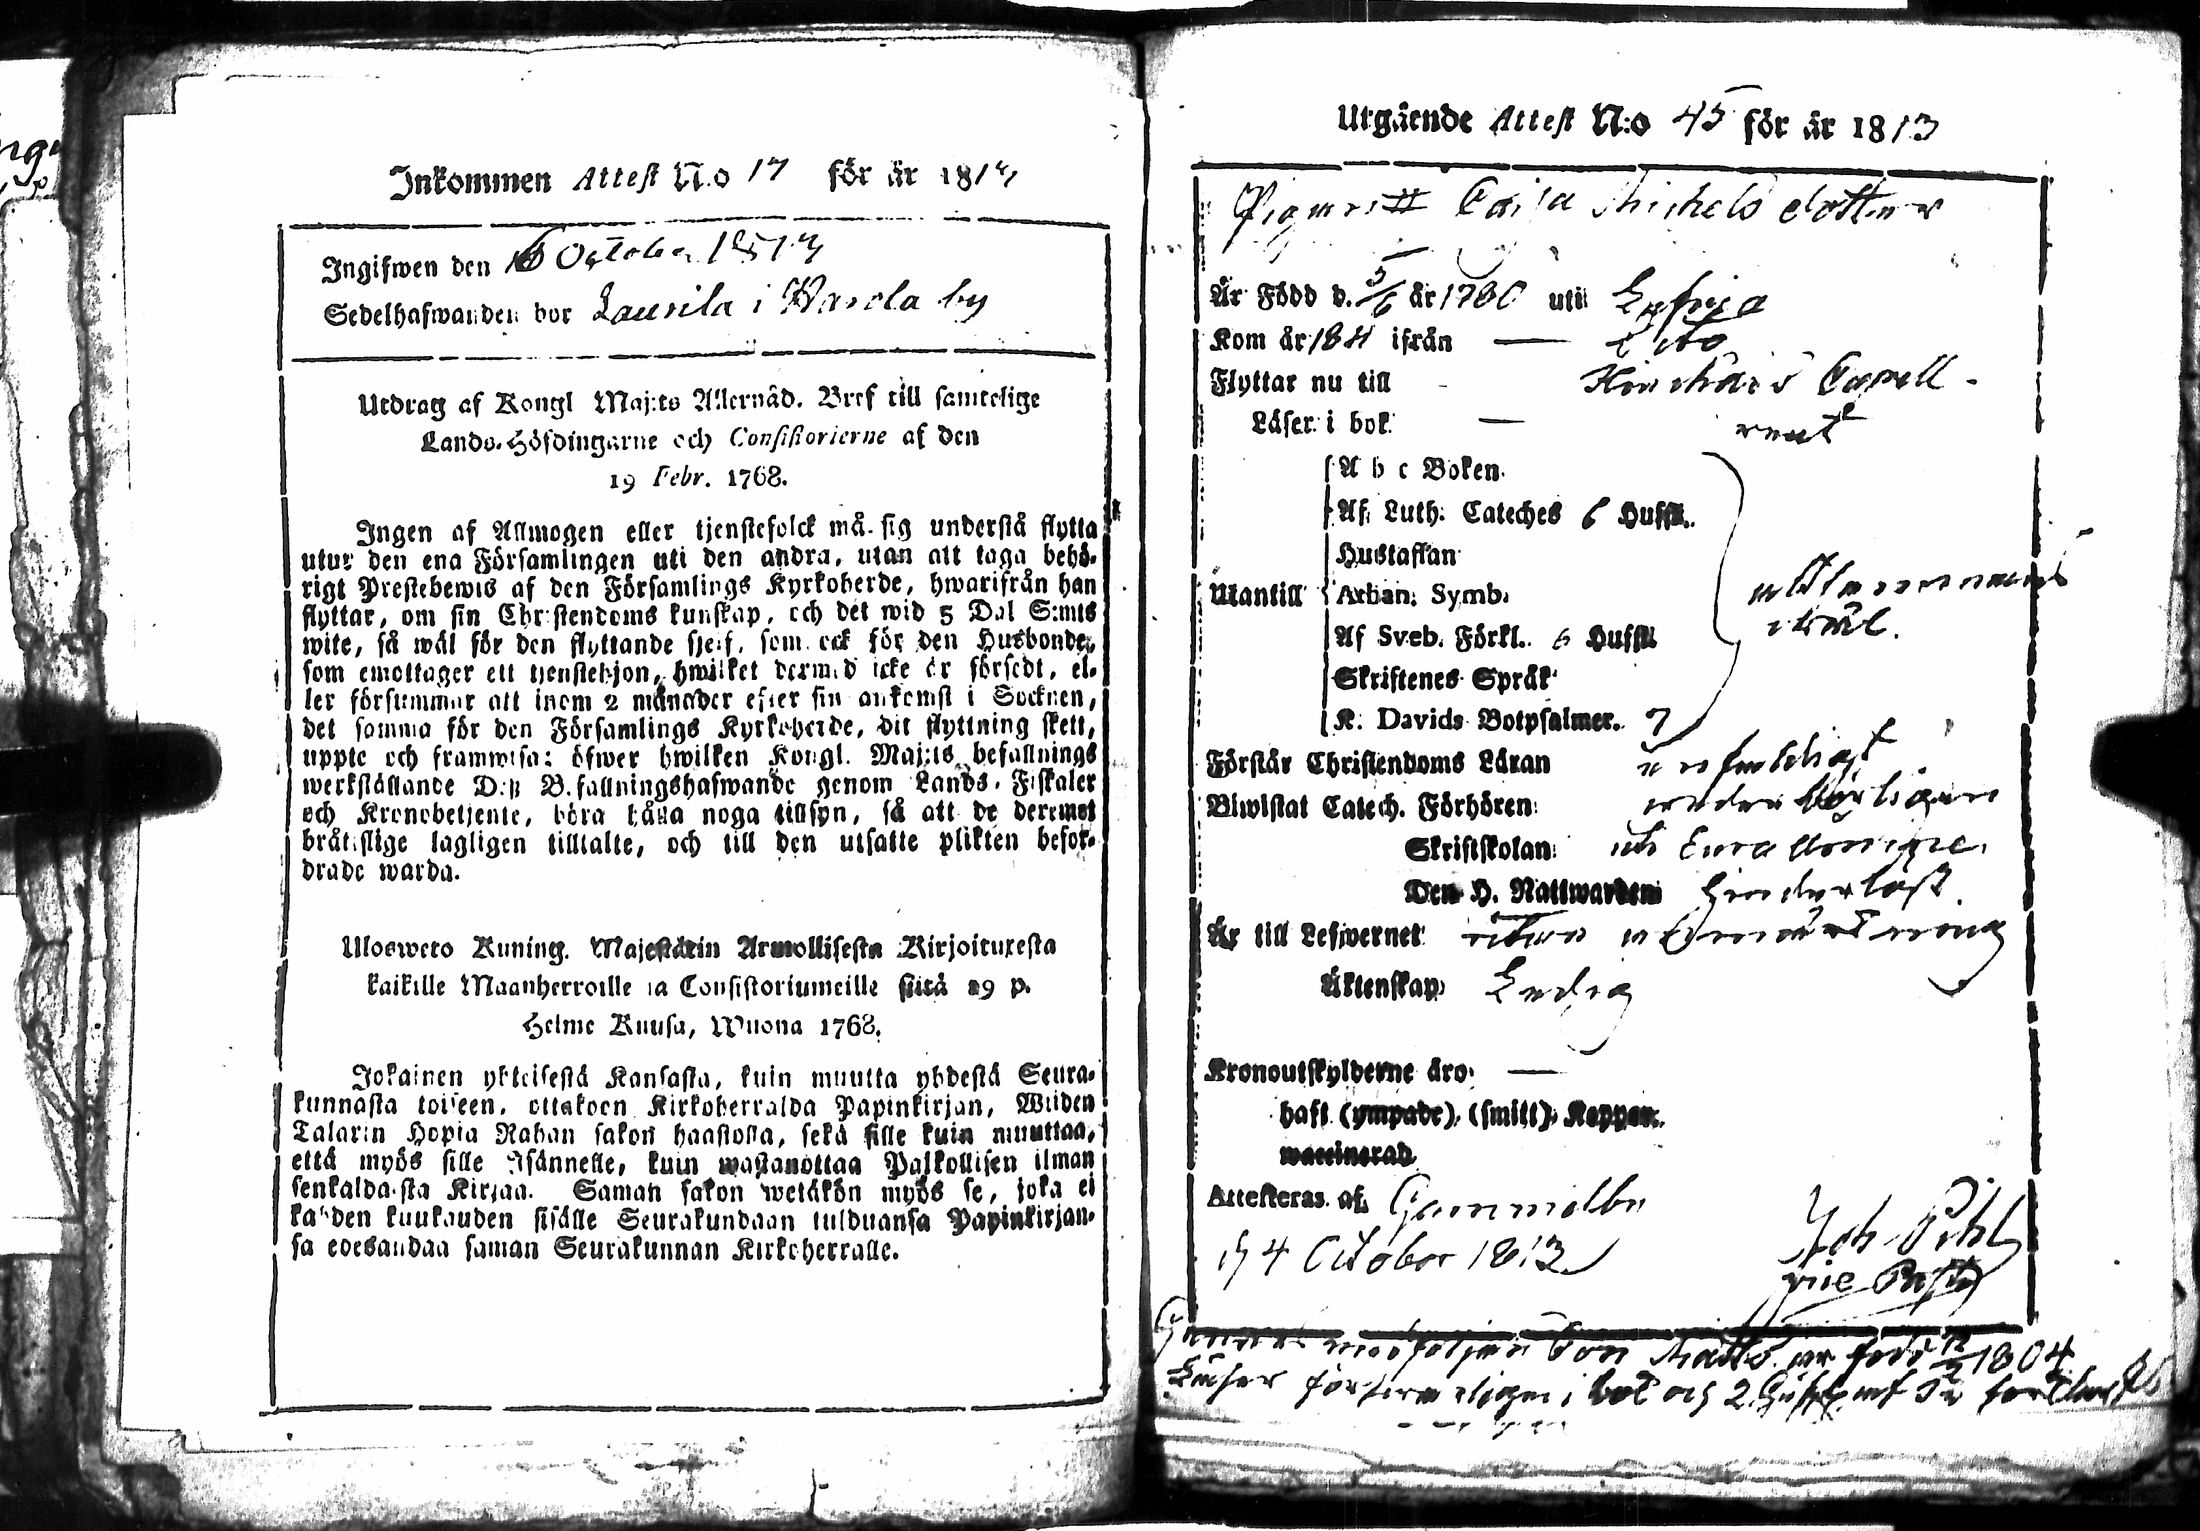 Inkommen Attest N:o 17 för år 1813
Ingifwen den 6 October 1813
Sedelhafwanden bor Laurila i Warola by
Utdrag af Kongl Maj:ts Allernåd. Bref till samtelige
Lands-Höfdingarne och Consistorierne af den
19 Febr. 1768.
Ingen af Allmogen eller tjenstefolck må sig understå flytta
utur den ena Församlingen uti den andra, utan att taga behö-
rigt Prestebewis af den Församlings Kyrkoherde, hwarifrån han
flyttar, om sin Christendoms kunskap, och det wid 5 Dal S:mts
wite, så wäl för den flyttande sjelf, som ock för den Husbonde,
som emottager ett tjenstehjon, hwilket dermed icke är försedt, el-
ler försummar att inom 2 månader efter sin ankomst i Socknen,
det samma för den Församlings Kyrkoherde, dit flyttning skett,
uppte och framwisa: öfwer hwilken Kongl. Maj:ts befallnings
werkställande Deß Befallningshafwande genom Lands-Fiskaler
och Kronobetjente, böra hålla noga tillsyn, så att de deremot
bråtslige lagligen tilltalte, och till den utsatte plikten befor-
drade warda.
Uloswero Kuning. Majestätin Armollisesta Kirjoituxesta
kaikille Maanherroille ja Consistoriumeille siitä 19 p.
Helme Kuusa, Wuona 1768.
Jokainen yhteisestä Kansasta, kuin muutta yhdestä Seura-
kunnasta toiseen, ottakoen Kirkoherralda Papinkirjan, Wiiden
Talarin Hopia Rahan sakon haastolla, sekä sille kuin muuttaa,
että myös sille Isännelle, kuin wastanottaa Palkollisen ilman
senkaldaista Kirjaa. Saman sakon wetäkön myös se, joka ei
kahden kuukauden sisälle Seurakundaan tulduansa Papinkirjan-
sa edesandaa saman Seurakunnan Kirkoherralle.
Utgående Attest N:o 45 för år 1813
Pigan Caisa Michels dotter
Är Född d. 5/6 år 1780 uti
Kom år 1811 ifrån —
Flyttar nu till Capell
Läser i bok — rent
A b c Boken
Af Luth. Cateches 6 Hufst.
Hustaflan
Utantill Athan. Symb.
Af Sveb. Förkl. 6 Hufst.
Skriftenes Språk
K. Davids Botpsalmer. 7
Förstår Christendoms Läran enfaldigt
Biwistat Catech. Förhören
Skriftskolan
Den H. Nattwarden hinderlöst
Är till Lefwernet utan anmärkning
Äktenskap Ledig
Kronoutskylderne äro —
haft (ympade) (smitt) Koppor
waccinerad
Attesteras af Gammelby
d 4 October 1813 Joh Pihl
vice Past
medföljer Son Matts är född 1804
Läser i bok och 2